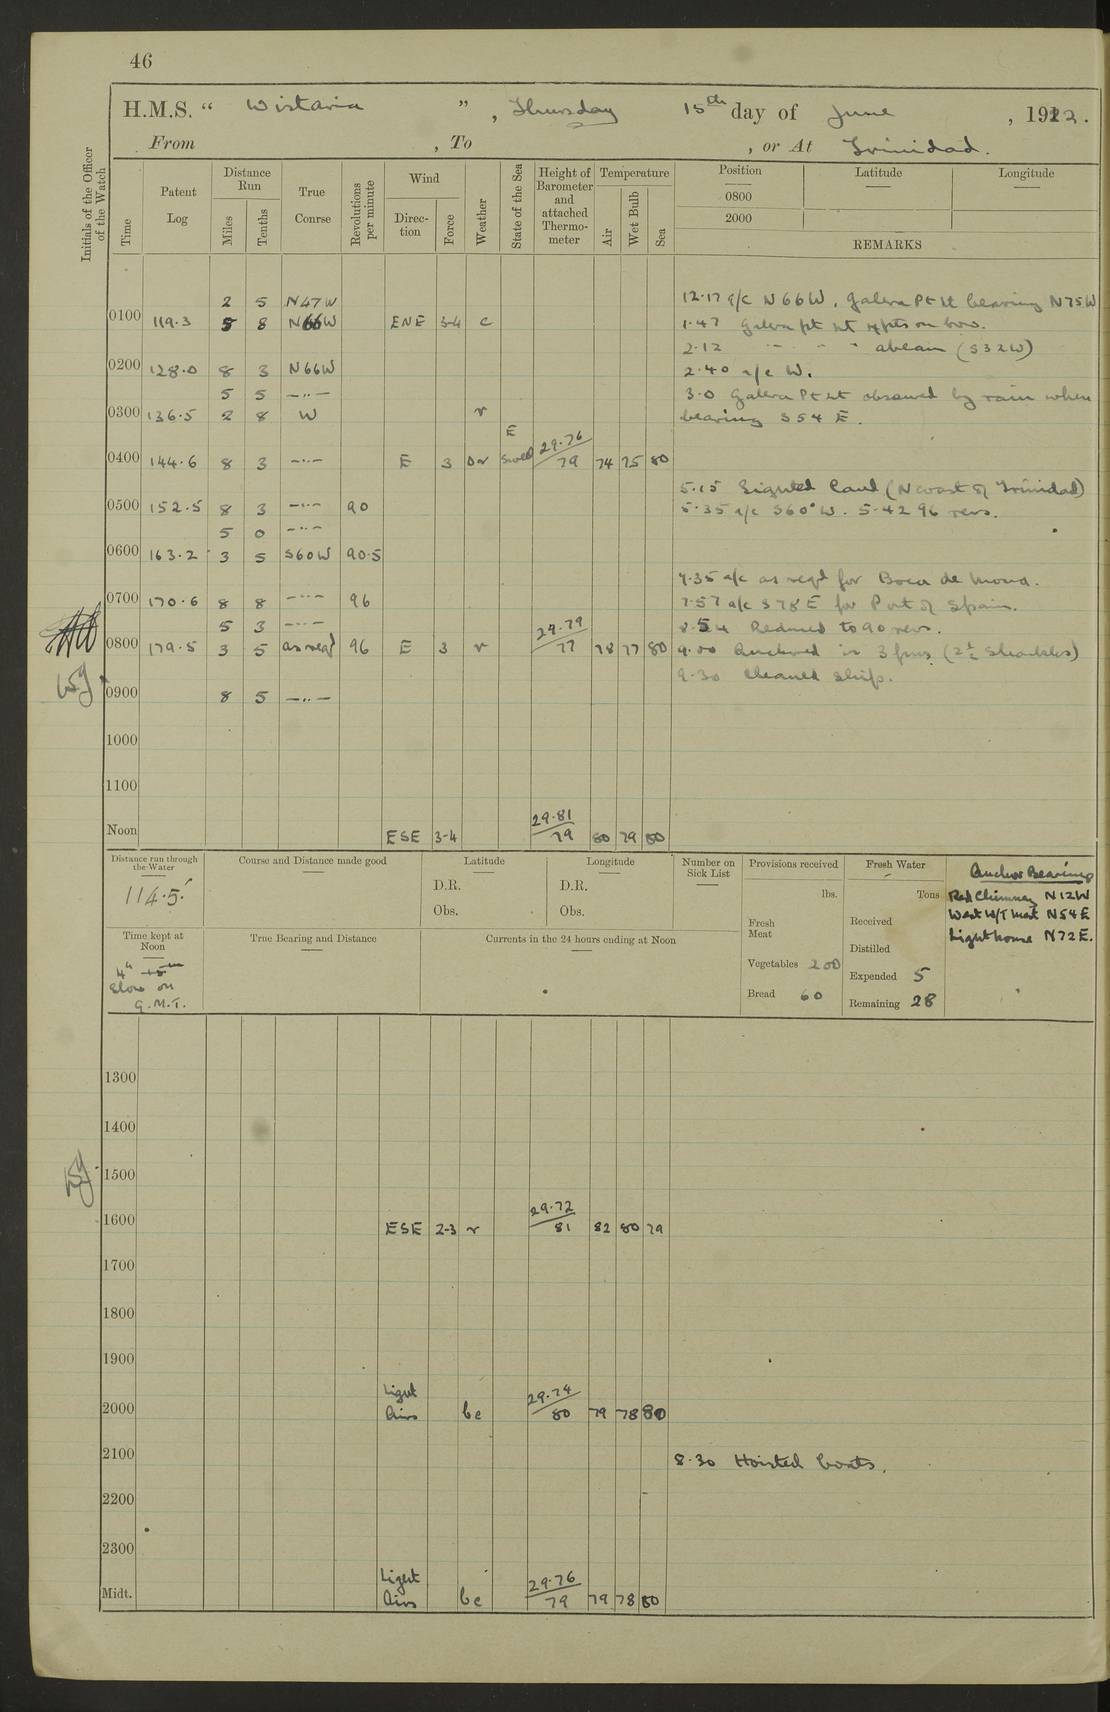 46
H.M.S. " Wistaria ", Thursday 15th day of June, 1922.
From , To , or At Trinidad.
Initials of the Officer of the Watch
Time
Patent Log
Distance Run
Miles
Tenths
True Course
Revolutions per minute
Wind
Direction
Force
Weather
State of the Sea
Height of Barometer and attached Thermometer
Temperature
Air
Wet Bulb
Sea
Position
Latitude
Longitude
0800
2000
REMARKS
2 5 N47W 12·17 a/c N66W, Galera Pt Lt bearing N75W
0100 119·3 5 8 N66W ENE 3-4 c 1·47 Galera pt Lt 4pts on bow.
2·12 " " " abeam (S32W)
0200 128·0 8 3 N66W 2·40 a/c W.
5 5 —"— 3·0 Galera Pt Lt obscured by rain when
0300 136·5 2 8 W r bearing S54E.
E 29·76
0400 144·6 8 3 —"— E 3 or Swell 79 74 75 80
5·15 Sighted land (N coast of Trinidad)
0500 152·5 8 3 —"— 90 5·35 a/c S60°W. 5·42 96 revs.
5 0 —"—
0600 163·2 3 5 S60W 90·5
7·35 a/c as reqd for Boca de Mona.
0700 170·6 8 8 —"— 96 7·57 a/c S78E for Port of Spain.
5 3 —"— 29·79 8·54 Reduced to 90 revs.
0800 179·5 3 5 as reqd 96 E 3 r 77 78 77 80 9·00 Anchored in 3 fms (2½ Shackles)
9·30 Cleaned ship.
0900 8 5 —"—
1000
1100
29·81
Noon ESE 3-4 79 80 79 80
Distance run through the Water
114·5'
Course and Distance made good
Latitude
D.R.
Obs.
Longitude
D.R.
Obs.
Number on Sick List
Provisions received
lbs.
Fresh Meat
Vegetables 200
Bread 60
Fresh Water
Tons
Received
Distilled
Expended 5
Remaining 28
Anchor Bearing
Red Chimney N12W
West W/T Mast N54E
Lighthouse N72E.
Time kept at Noon
4h
Slow on
G.M.T.
True Bearing and Distance
Currents in the 24 hours ending at Noon
1300
1400
1500
29·72
1600 ESE 2-3 r 81 82 80 79
1700
1800
1900
Light 29·74
2000 Airs bc 80 79 78 80
2100 8·30 Hoisted boats.
2200
2300
Light 29·76
Midt. Airs bc 79 79 78 80